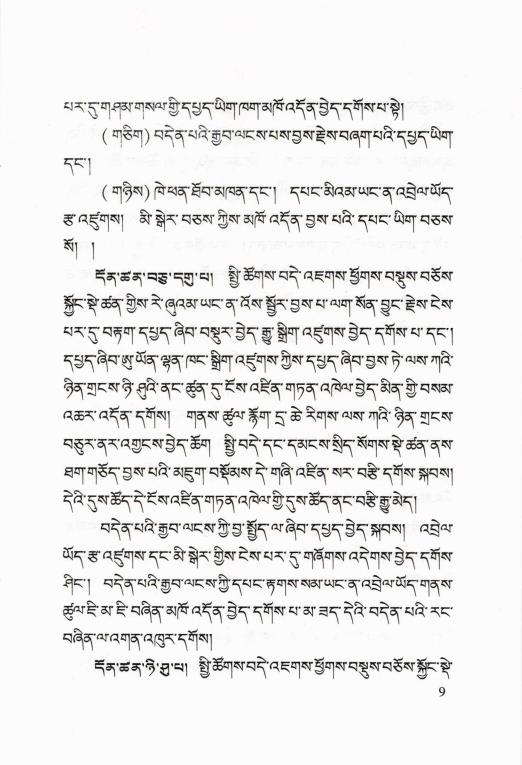 པར་དུ་གཤམ་གསལ་གྱི་དཔྱད་ཡིག་ཁག་མཁོ་འདོན་བྱེད་དགོས་པ་སྟེ།
(གཅིག) བདེན་པའི་རྒྱབ་ལངས་པས་བྱས་རྗེས་བཞག་པའི་དཔྱད་ཡིག
དང་།
(གཉིས) ཁེ་ཕན་ཐོབ་མཁན་དང་། དཔང་མིའམ་ཡང་ན་འབྲེལ་ཡོད་
རྩ་འཛུགས། མི་སྒེར་བཅས་ཀྱིས་མཁོ་འདོན་བྱས་པའི་དཔང་ཡིག་བཅས་
སོ། །
དོན་ཚན་བཅུ་དགུ་པ། སྤྱི་ཚོགས་བདེ་འཇགས་ཕྱོགས་བསྡུས་བཅོས་
སྐྱོང་སྡེ་ཚན་གྱིས་རེ་ཞུའམ་ཡང་ན་འོས་སྦྱོར་བྱས་པ་ལག་སོན་བྱུང་རྗེས་ངེས་
པར་དུ་བརྟག་དཔྱད་ཞིབ་བསྡུར་བྱེད་རྒྱུ་སྒྲིག་འཛུགས་བྱེད་དགོས་པ་དང་།
དཔྱད་ཞིབ་ཨུ་ཡོན་ལྷན་ཁང་སྒྲིག་འཛུགས་ཀྱིས་དཔྱད་ཞིབ་བྱས་ཏེ་ལས་ཀའི་
ཉིན་གྲངས་ཉི་ཤུའི་ནང་ཚུན་དུ་ངོས་འཛིན་གཏན་འཁེལ་བྱེད་མིན་གྱི་བསམ་
འཆར་འདོན་དགོས། གནས་ཚུལ་རྙོག་དྲ་ཆེ་རིགས་ལས་ཀའི་ཉིན་གྲངས་
བཅུར་ནར་འགྱངས་བྱེད་ཆོག སྤྱི་བདེ་དང་དམངས་སྲིད་སོགས་སྡེ་ཚན་ནས་
ཐག་གཅོད་བྱས་པའི་མཇུག་བསྡོམས་དེ་གཞི་འཛིན་སར་བརྩི་དགོས་སྐབས།
དེའི་དུས་ཚོད་དེ་ངོས་འཛིན་གཏན་འཁེལ་གྱི་དུས་ཚོད་ནང་བརྩི་རྒྱུ་མེད།
བདེན་པའི་རྒྱབ་ལངས་ཀྱི་བྱ་སྤྱོད་ལ་ཞིབ་དཔྱད་བྱེད་སྐབས། འབྲེལ་
ཡོད་རྩ་འཛུགས་དང་མི་སྒེར་གྱིས་ངེས་པར་དུ་གཞོགས་འདེགས་བྱེད་དགོས་
ཤིང་། བདེན་པའི་རྒྱབ་ལངས་ཀྱི་དཔང་རྟགས་སམ་ཡང་ན་འབྲེལ་ཡོད་གནས་
ཚུལ་ཇི་མ་ཇི་བཞིན་མཁོ་འདོན་བྱེད་དགོས་པ་མ་ཟད་དེའི་བདེན་པའི་རང་
བཞིན་ལ་འགན་འཁུར་དགོས།
དོན་ཚན་ཉི་ཤུ་པ། སྤྱི་ཚོགས་བདེ་འཇགས་ཕྱོགས་བསྡུས་བཅོས་སྐྱོང་སྡེ་
9